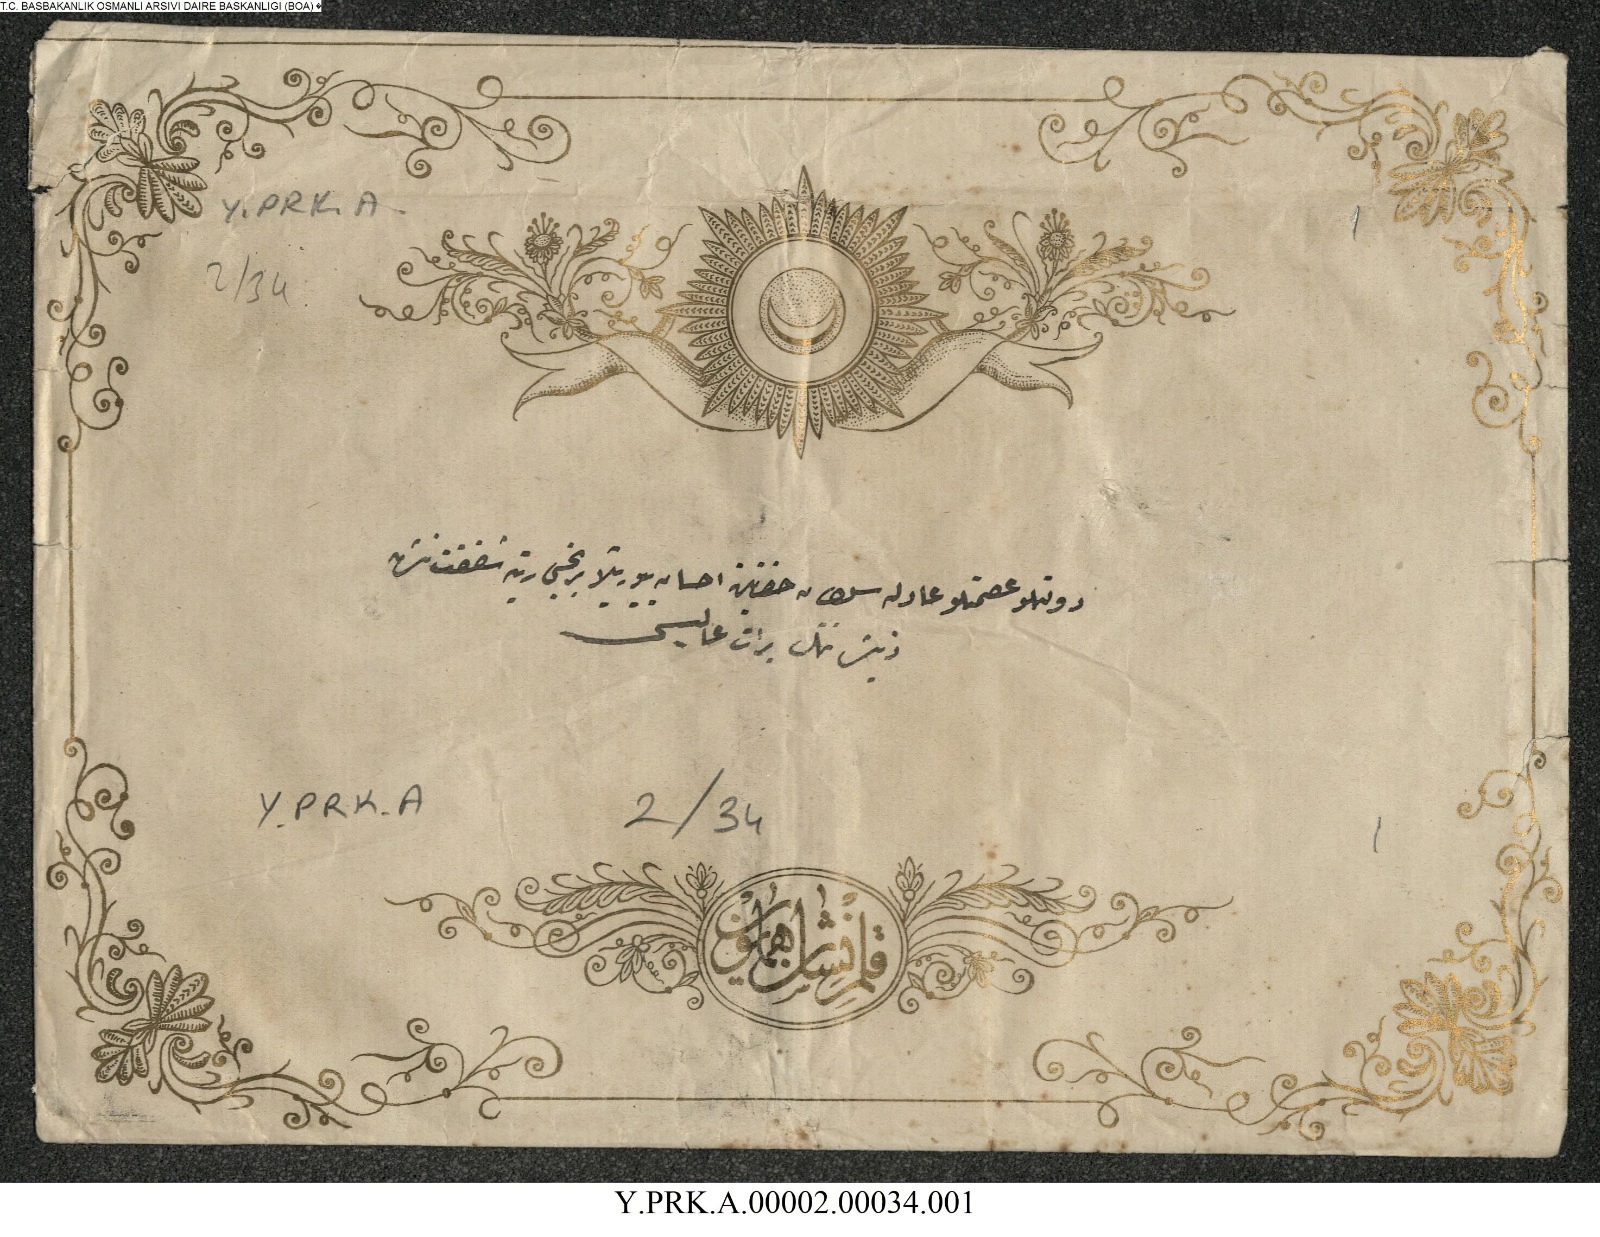 T.C. BASBAKANLIK OSMANLI ARSIVI DAIRE BASKANLIGI (BOA)
Y.PRK.A.
1
2/34
دولتلو عصمتلو عادله سلطان حضرتلرینه احسان بیوریلان برنجی رتبه شفقت نشان
ذیشاننك برات عالیسی
Y.PRK.A
2/34
1
قلم نشان همایون
Y.PRK.A.00002.00034.001